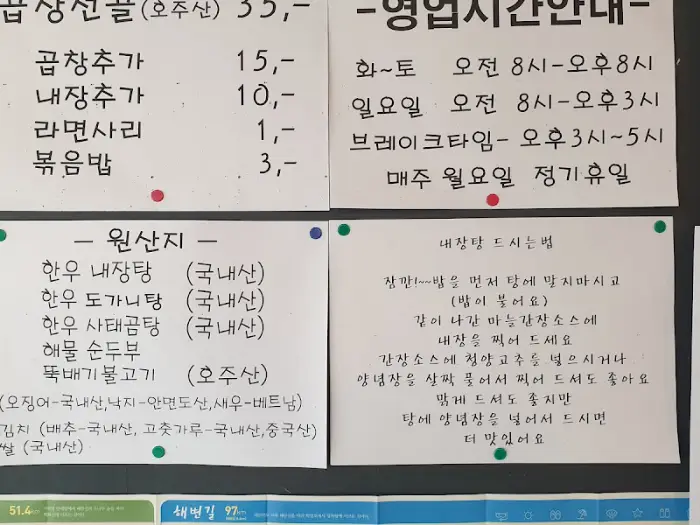 곱창전골(호주산) 35,-
곱창추가 15,-
내장추가 10,-
라면사리 1,-
볶음밥 3,-
-영업시간안내-
화~토 오전 8시-오후8시
일요일 오전 8시-오후3시
브레이크타임- 오후3시~5시
매주 월요일 정기휴일
- 원산지 -
한우 내장탕 (국내산)
한우 도가니탕 (국내산)
한우 사태곰탕 (국내산)
해물 순두부
뚝배기불고기 (호주산)
(오징어-국내산,낙지-안면도산,새우-베트남)
김치 (배추-국내산, 고춧가루-국내산,중국산)
쌀 (국내산)
내장탕 드시는법
잠깐!~~밥을 먼저 탕에 말지마시고
(밥이 불어요)
같이 나간 마늘간장소스에
내장을 찍어 드세요
간장소스에 청양고추를 넣으시거나
양념장을 살짝 풀어서 찍어 드셔도 좋아요
맑게 드셔도 좋지만
탕에 양념장을 넣어서 드시면
더 맛있어요
51.4km
해변길 97km